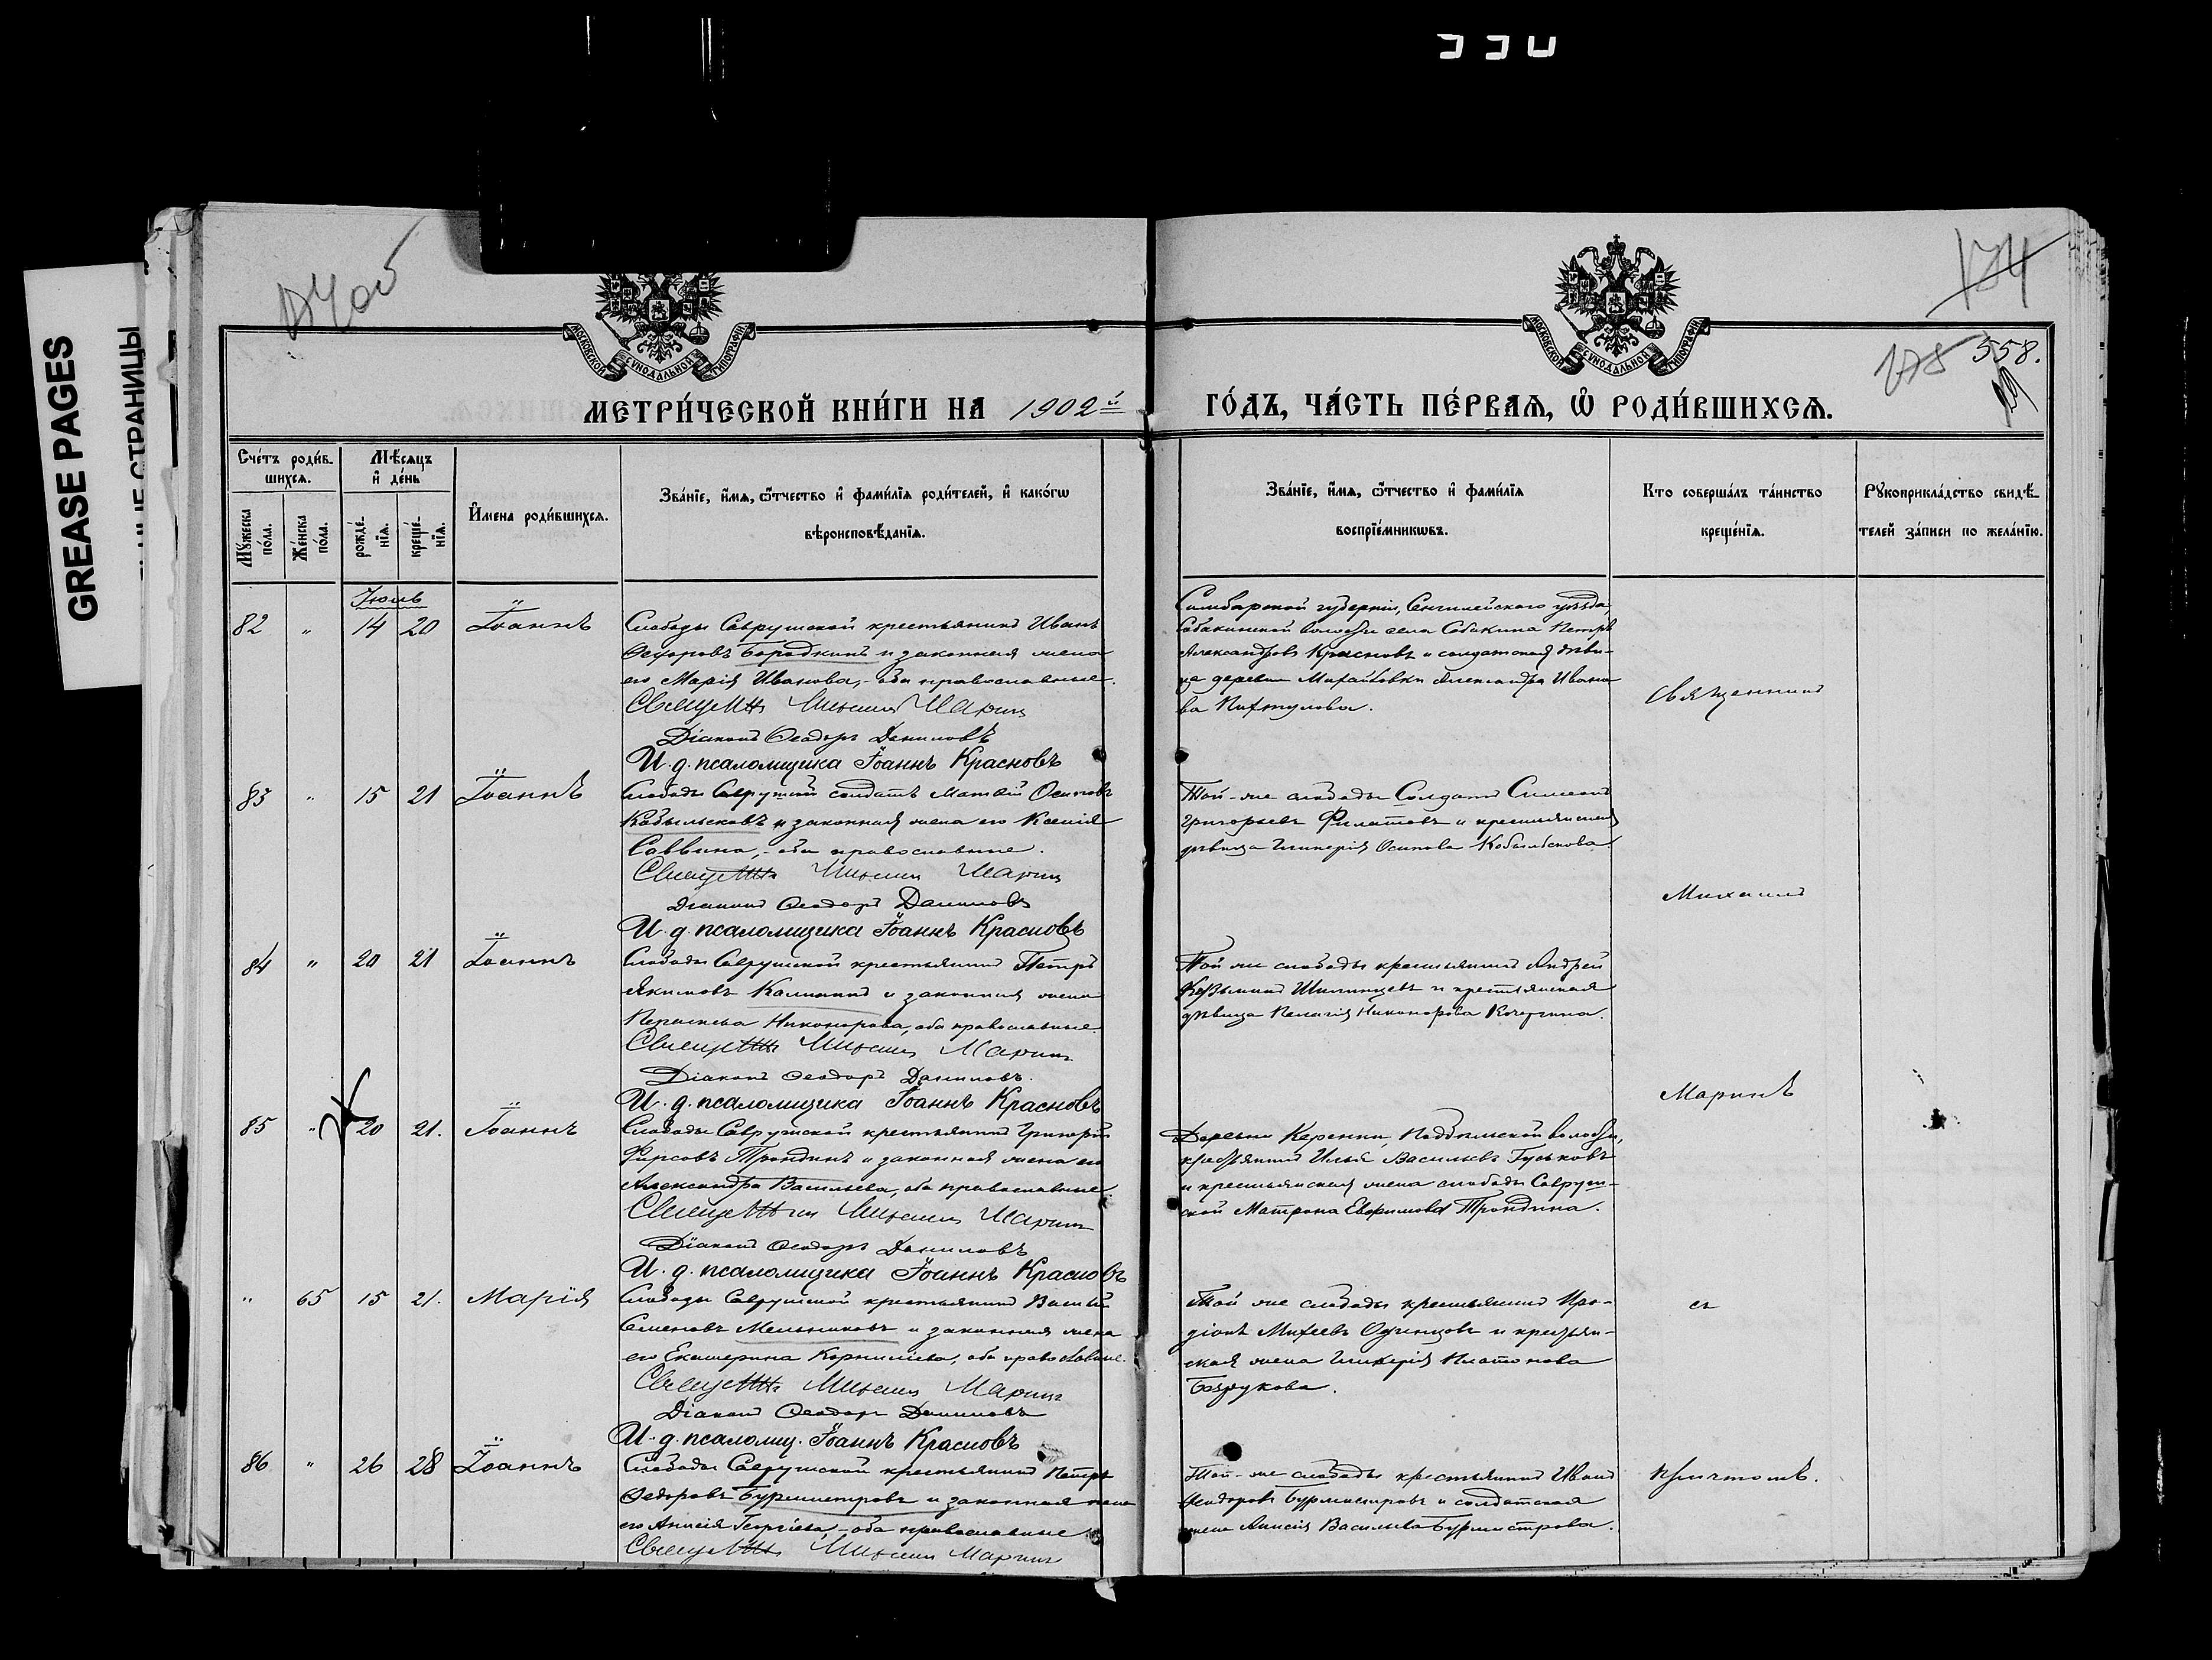 GREASE PAGES
СТРАНИЦЫ
174об
174
178
558.
МОСКОВСКОЙ СѴНОДАЛЬНОЙ ТИПОГРАФІИ
МОСКОВСКОЙ СѴНОДАЛЬНОЙ ТИПОГРАФІИ
МЕТРИ́ЧЕСКОЙ КНИ́ГИ НА 1902й ГО́ДЪ, ЧА́СТЬ ПЕ́РВАѦ, Ѡ РОДИ́ВШИХСѦ.
Сче́тъ роди́в-
шихсѧ.
Мѣ́сѧцъ
и҆ де́нь
Мꙋ́жеска по́ла.
Же́нска по́ла.
рожде́-
нїѧ.
креще́-
нїѧ.
И҆мена роди́вшихсѧ.
Зва́нїе, и҆́мѧ, ѻ҆́тчество и҆ фами́лїѧ роди́телей, и҆ како́гѡ
вѣроисповѣ́данїѧ.
Зва́нїе, и҆́мѧ, ѻ҆́тчество и҆ фами́лїѧ
воспрїе́мникѡвъ.
Кто соверша́лъ та́инство
креще́нїѧ.
Рꙋкоприкла́дство свидѣ́-
телей за́писи по жела́нїю.
Іюнь
82 " 14 20 Іоаннъ
Слободы Саврушской крестьянинъ Иванъ
Ѳедоровъ Бородкинъ и законная жена
его Марія Иванова, - оба православные.
Священ Михаилъ Маринъ
Діаконъ Ѳеодоръ Даниловъ
И. д. псаломщика Іоаннъ Красновъ
Симбирской губерніи, Сенгилейскаго уѣзда,
Собакинской волости села Собакина Петръ
Александровъ Красновъ и солдатская дѣви-
ца деревни Михайловки Александра Ивано
ва Пихтулова.
Священникъ
83 " 15 21 Іоаннъ
Слободы Саврушской солдатъ Матвѣй Осиповъ
Кобыльсковъ и законная жена его Ксенія
Саввина, - оба православные.
Священ Михаилъ Маринъ
Діаконъ Ѳеодоръ Даниловъ
И. д. псаломщика Іоаннъ Красновъ
Той-же слободы Солдатъ Симеонъ
Григорьевъ Филатовъ и крестьянская
дѣвица Гликерія Осипова Кобыльскова.
Михаилъ
84 " 20 21 Іоаннъ
Слободы Саврушской крестьянинъ Петръ
Якимовъ Калининъ и законная жена
Пераскева Никонорова, оба православные.
Священ Михаилъ Маринъ
Діаконъ Ѳеодоръ Даниловъ.
И. д. псаломщика Іоаннъ Красновъ
Той же слободы крестьянинъ Андрей
Козьминъ Шилинцевъ и крестьянская
дѣвица Пелагія Никонорова Кочергина.
Маринъ
85 " 20 21. Іоаннъ
Слободы Саврушской крестьянинъ Григорій
Фирсовъ Трондинъ и законная жена его
Александра Васильева, оба православные.
Священ Михаилъ Маринъ
Діаконъ Ѳеодоръ Даниловъ
И. д. псаломщика Іоаннъ Красновъ
Деревни Керенки, Поддыльской волости,
крестьянинъ Илья Васильевъ Гуськовъ
и крестьянская жена слободы Савруш-
ской Матрона Евфимова Трондина.
" 65 15 21. Марія
Слободы Саврушской крестьянинъ Василій
Семеновъ Мельниковъ и законная жена
его Екатерина Корниліева, оба православные.
Священ Михаилъ Маринъ
Діаконъ Ѳеодоръ Даниловъ
И. д. псаломщ. Іоаннъ Красновъ
Той же слободы крестьянинъ Иро-
діонъ Михеевъ Одинцовъ и крестьян-
ская жена Гликерія Платонова
Безрукова.
съ
86 " 26 28 Іоаннъ
Слободы Саврушской крестьянинъ Петръ
Ѳедоровъ Бурмистровъ и законная жена
его Анисія Георгіева, - оба православные
Священ Михаилъ Маринъ
Той-же слободы крестьянинъ Иванъ
Ѳеодоровъ Бурмистровъ и солдатская
жена Анисія Васильева Бурмистрова.
причтомъ.